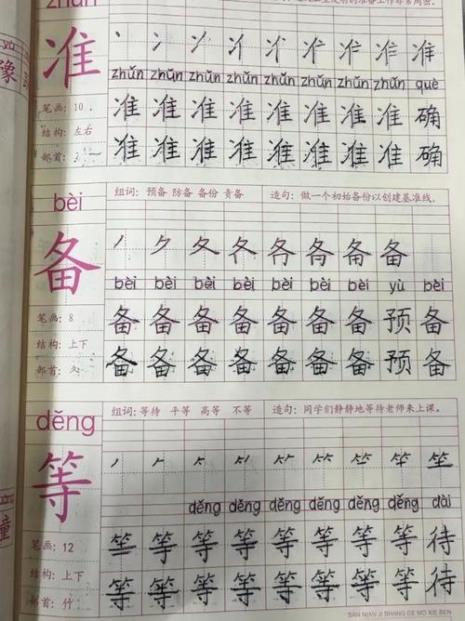 zhǔn
准
zhǔn zhǔn zhǔn zhǔn zhǔn zhǔn zhǔn què
笔画：10
准 准 准 准 准 准 准 确
结构：左右
部首：冫
准 准 准 准 准 准 准 确
bèi
组词：预备 防备 备份 责备 造句：做一个初始备份以创建基准线。
备
丿 ク 夂 备
bèi bèi bèi bèi bèi bèi yù bèi
笔画：8
备 备 备 备 备 备 预 备
结构：上下
部首：夂
备 备 备 备 备 备 预 备
děng
组词：等待 平等 高等 不等 造句：同学们静静地等待老师来上课。
等
děng děng děng děng děng děng dài
笔画：12
等 等 等 等 等 等 待
结构：上下
部首：竹
等 等 等 等 等 等 等 待
SAN NIAN JI SHANG CE MO XIE BEN
豫